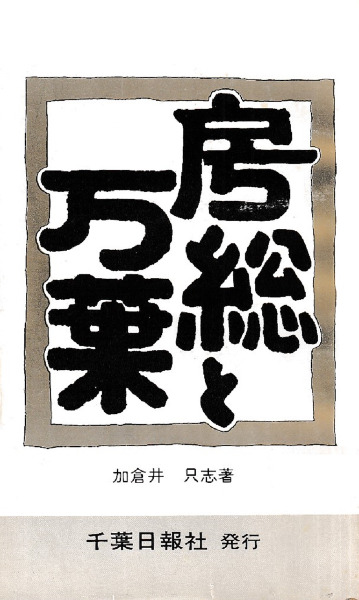 房総と
万葉
加倉井 只志著
千葉日報社 発行